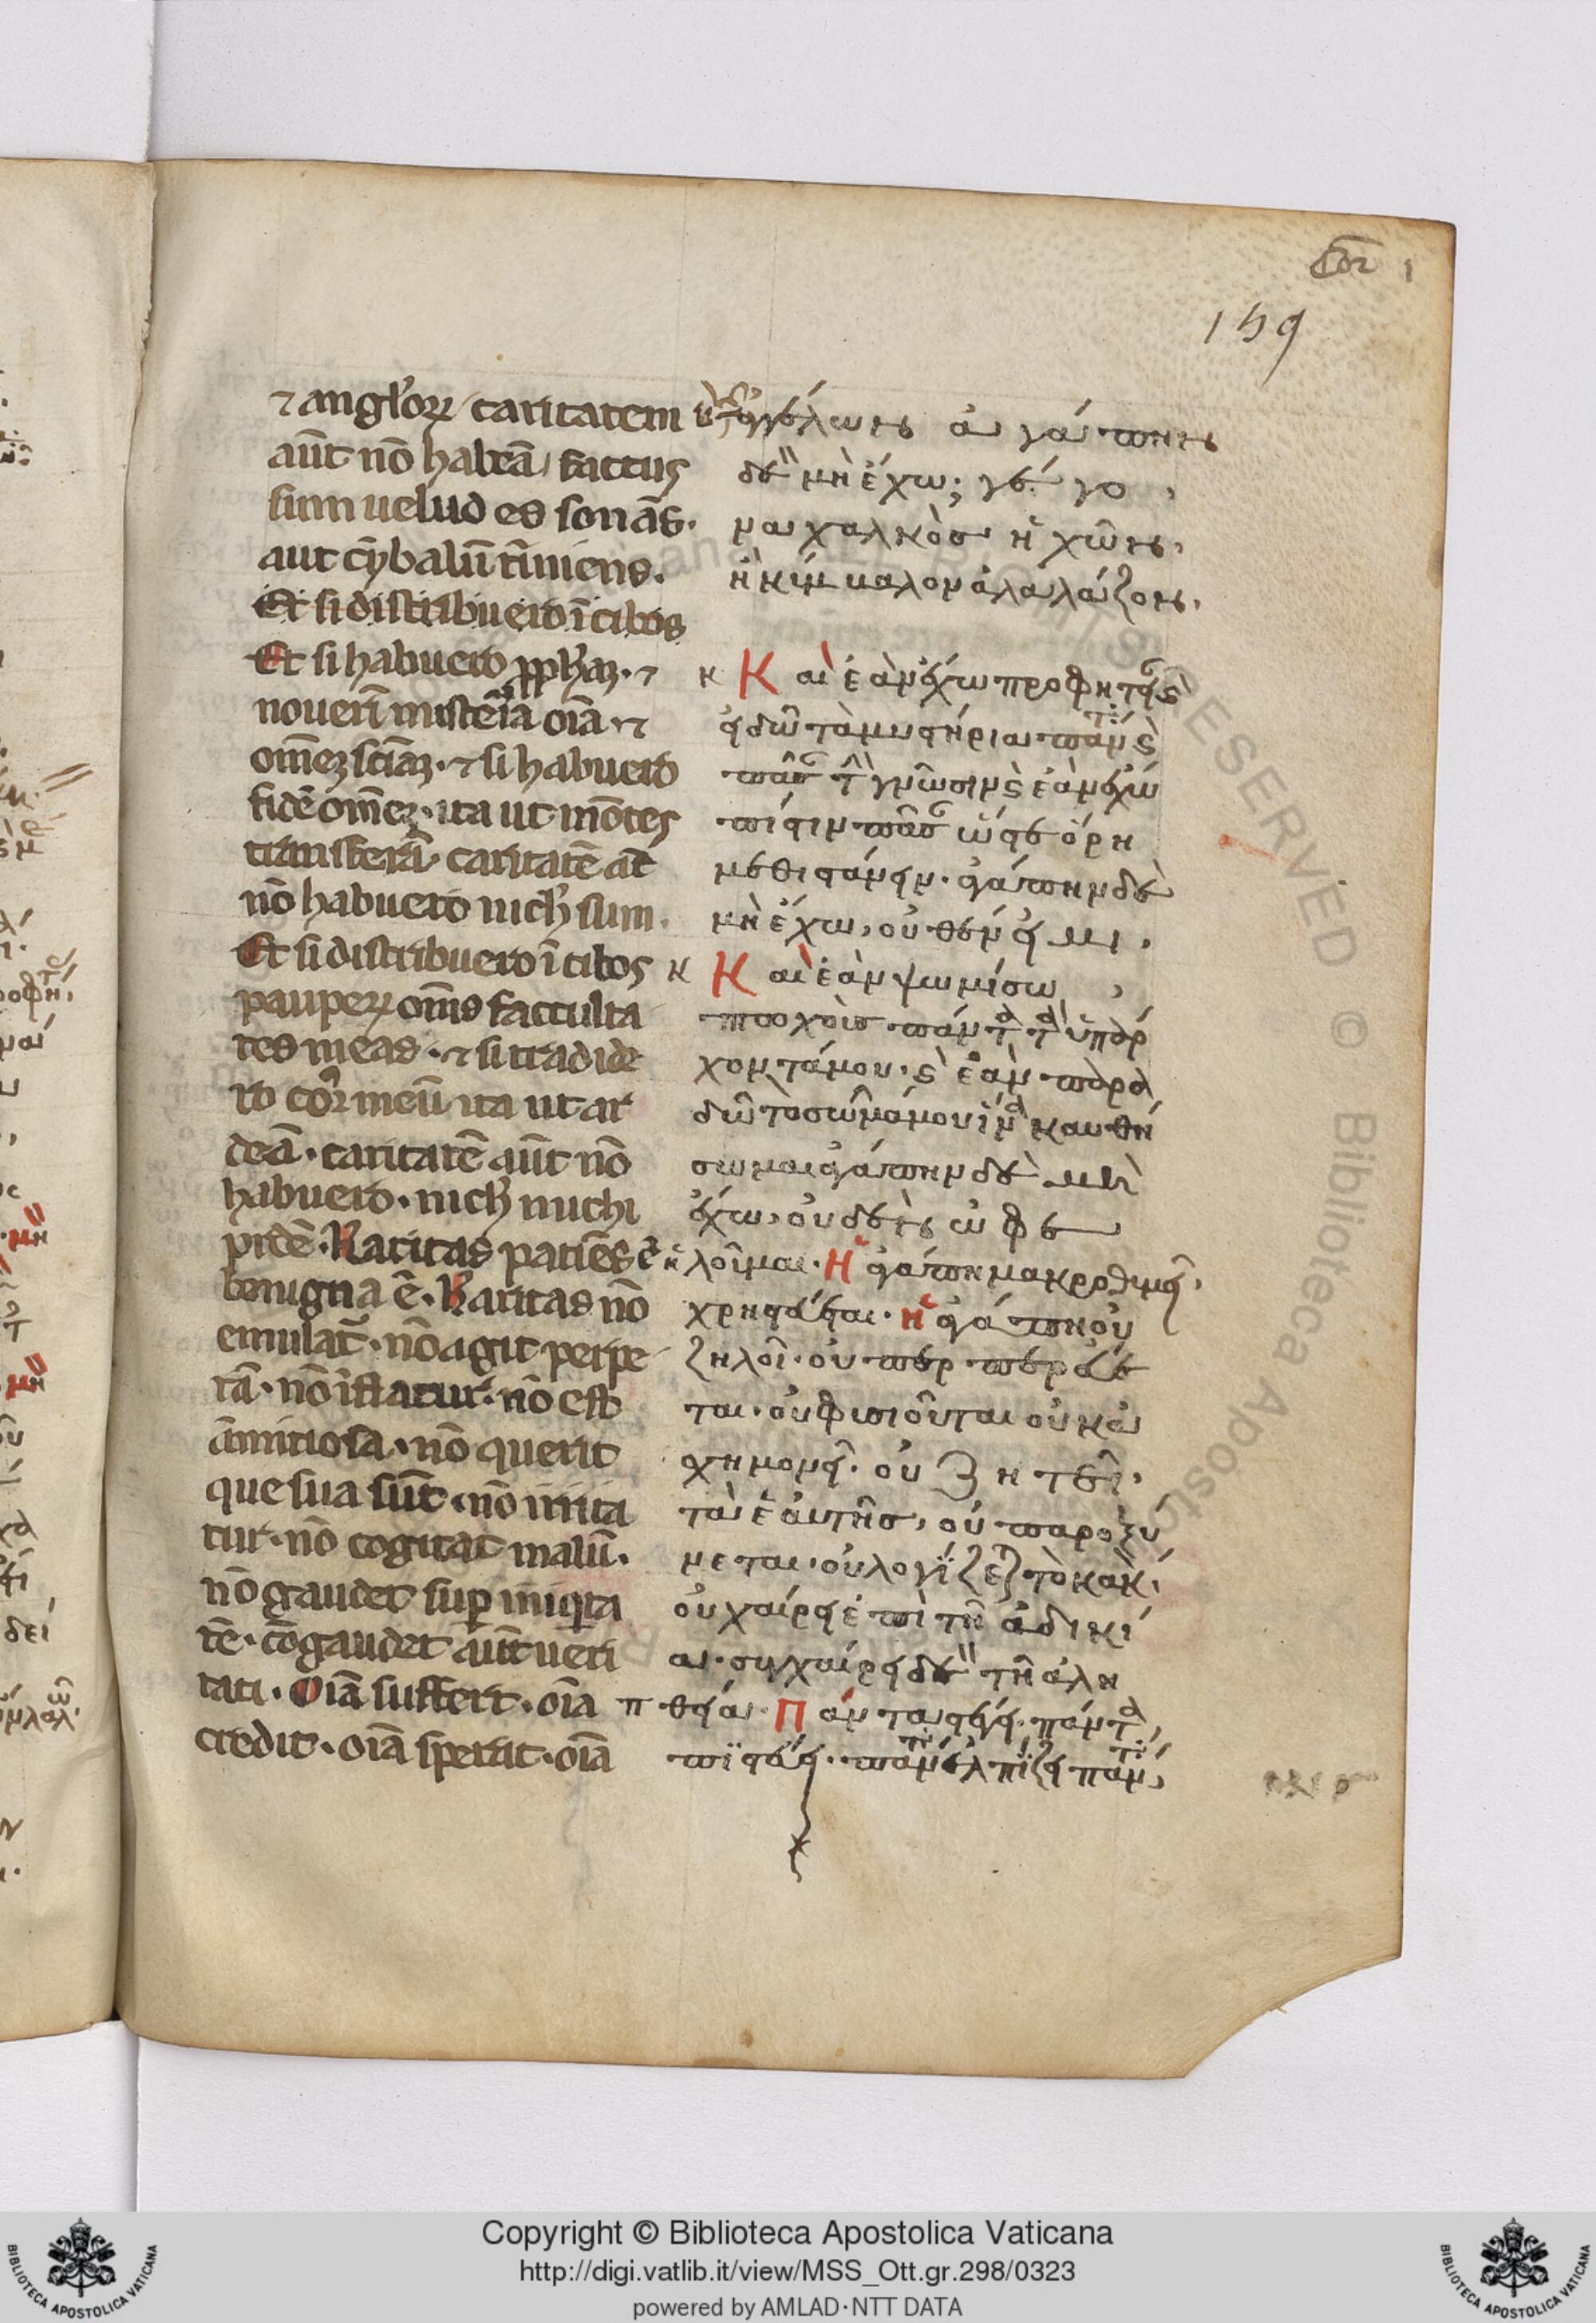 Cor 1
159
⁊ anglꝰoꝝ caritatem
aūt nō habeā factus
sum velud es sonās.
aut cȳbalū tīniens.
Et si distribuero ī cibos
Et si habuero ꝓph̄iaꝫ. ⁊
noveri᷑ misteria oīa. ⁊
om̄eꝫ sciāꝫ. ⁊ si habuero
fidē om̄eꝫ. ita ut mōtes
transferā caritatē at̄
nō habuero nich̄ sum.
Et si distribuero ī cibos
pauperꝝ om̄s faculta
tes meas. ⁊ si tradide
ro corꝰ meū ita ut ar
deā. caritatē aūt nō
habuero. nich̄ michi
prdē. Karitas patiēs ē
benigna ē. Karitas nō
emulat᷑. nō agit perpe
rā. nō īflatur. nō est
āmitiosa. nō querit
que sua sūt. nō irrita
tur. nō cogitat malū.
nō gaudet suꝑ iniqita
tē. cōgaudet aūt veri
tati. Oīa suffert. oīa
credit. oīa sperat. oīa
ἀγγέλων ἀγάπην
δὲ μὴ ἔχω; γέγο
να χαλκὸσ ἠχῶν,
ἢ κύμβαλον ἀλαλάζον,
κ Καὶ ἐὰν ἔχω προφητείαν ϗ
εἰδῶ τὰ μυστήρια πάντα ϗ
πᾶσαν τὴν γνῶσιν ϗ ἐὰν ἔχω
πίστιν πᾶσαν ὥστε ὄρη
μεθιστάνειν. ἀγάπην δὲ
μὴ ἔχω, οὐθέν εἰμι.
κ Καὶ ἐὰν ψωμίσω
πτοχοῖσ πάντα τὰ ὑπάρ
χοντά μου. ϗ ἐὰν παρα
δῶ τὸ σῶμά μου ἵνα καυθή
σωμαι ἀγάπην δὲ μὴ
ἔχω, οὐδὲν ὠφε
λοῦμαι. Ἡ ἀγάπη μακροθυμεῖ,
χρηστεύεται. ἡ ἀγάπη οὐ
ζηλοῖ. οὐ περπερεύε
ται. οὐ φισιοῦται οὐκ ἀ
σχημονεῖ. οὐ ζητεῖ.
τὰ ἑαυτῆσ, οὐ παροξύ
νεται. οὐ λογίζεται τὸ κακόν.
οὐ χαίρει ἐπὶ τῇ ἀδικί
α. συγχαίρει δὲ τῇ ἀλη
π θεία. Πάντα στέγει. πάντα
πιστεύει. πάντα ἐλπίζει πάντα
RESERVED © Biblioteca Apost
Copyright © Biblioteca Apostolica Vaticana
http://digi.vatlib.it/view/MSS_Ott.gr.298/0323
powered by AMLAD·NTT DATA
BIBLIOTECA APOSTOLICA VATICANA
BIBLIOTECA APOSTOLICA VATICANA